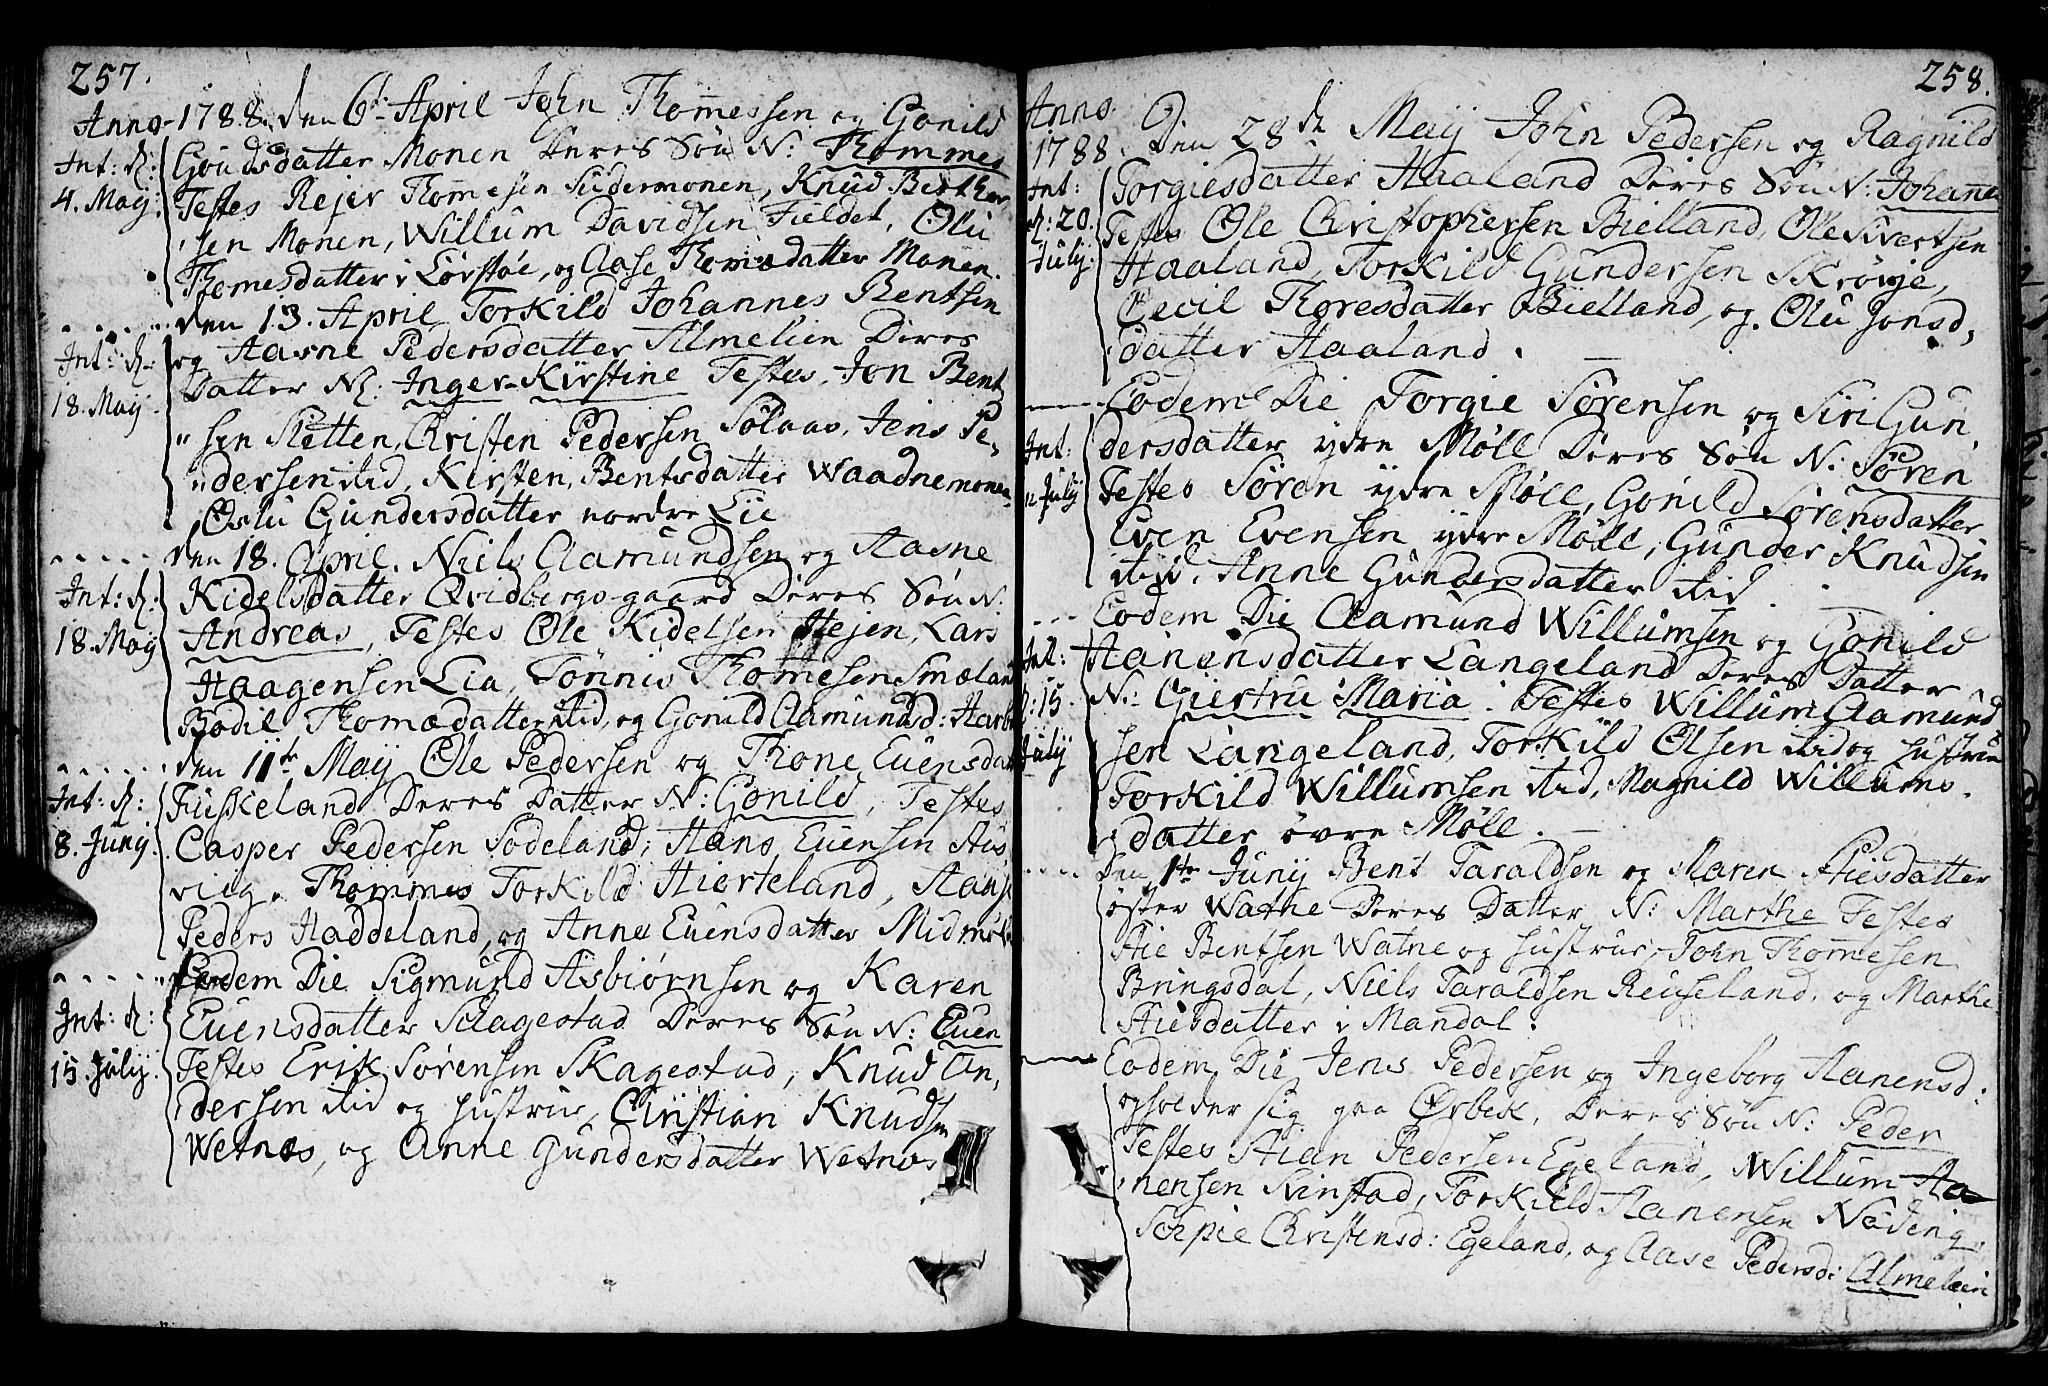 257.
Anno 1788. den 6te April John Thomessen og Gonild
Int: K:
4. Maij.
Gundsdatter Monen Deres Søn N: Thommes
Testes Rejer Thomesen Sudermonen, Knud Birther
sen Monen, Willum Davidsen Fieldet, Olu
Thomesdatter i Lørstøe, og Aase Thomædatter Monen.
den 13. April Torkild Johannes Bentsen
Int: K:
18. Maij.
og Aasne Pedersdatter Almelien Deres
Datter N: Inger-Kirstine Testes, Jon Bent
sen Sletten, Cristen Pedersen Solaas, Jens Pe-
dersen ibid, Kersten Bentsdatter Waadnemonen
Oslu Gundersdatter nordre Lie
den 18. April. Niels Aamundsen og Aasne
Int: K:
18. Maij
Kidelsdatter Qvidbergsgaard Deres Søn N:
Andreas, Testes Ole Kidelsen Hejen, Lars
Haagensen Lia, Tønnis Thomesen Smæland
Bodil Thomædatter ibid, og Gonild Aamundsd: Harb
den 11te Maij Ole Pedersen og Thone Euensda
Int: K:
8. Junij.
Fuskeland Deres Datter N: Gonild, Testes
Casper Pedersen Sodeland, Hans Euensen Aus
viig, Thommes Torkild Hierteland,
Peders Haddeland, og Anne Euensdatter
Eodem Die Sigmund Asbiørnsen og Karen
Int: K:
15. Julij.
Euensdatter Schagestad Deres Søn N: Euen
Testes Erik Sørensen Skagestad, Knud An,
dersen ibid og Hustrue, Christian Knudsen
Wetnæs, og Anne Gundersdatter Wetnæs
258.
Anno
1788. Den 28de Maij John Pedersen og Ragnild
Int:
K: 20.
Julij.
Torgiesdatter Haaland Deres Søn N: Johanes
Testes Ole Christophersen Bielland, Ole Sivertsen
Haaland, Torkild Gundersen Skrøvje,
Cecil Thoresdatter Bielland, og Olu Jonsd,
datter Haaland.
Eodem Die Torgie Sørensen og Siri Gun,
Int:
Julij
dersdatter ydre Møll Deres Søn N: Søren
Testes Søren ydre Møll, Gonild Sørensdatter
Even Evensen ydre Møll, Gunder Knudsen
ibid, Anne Gundersdatter ibid.
Eodem Die Aamund Willumsen og Gonild
Int:
K: 15.
Julij
Hanensdatter Langeland Deres Datter
N: Giertru Maria. Testes Willum Aamund
sen Langeland, Torkild Olsen ibid og Hustrue
Torkild Willumsen ibid, Magnild Willums.
datter øvre Møll.
Den 1te Junij Bent Taraldsen og Maren Aiesdatter
øster Watne Deres Datter N: Marthe Testes
Aie Bentsen Watne og Hustrue, John Thomesen
Bringsdal, Niels Taraldsen Reuseland, og Marthe
Aiesdatter i Mandal.
Eodem Die Jens Pedersen og Ingeborg Hanensd:
opholder sig paa Ørbek, Deres Søn N: Peder
Testes Stian Pedersen Egeland, Willum Aa
nensen Svinstad, Torkild Hanensen Nøding,
Sophie Christensd: Egeland, og Aase Pedersd: Almeleien